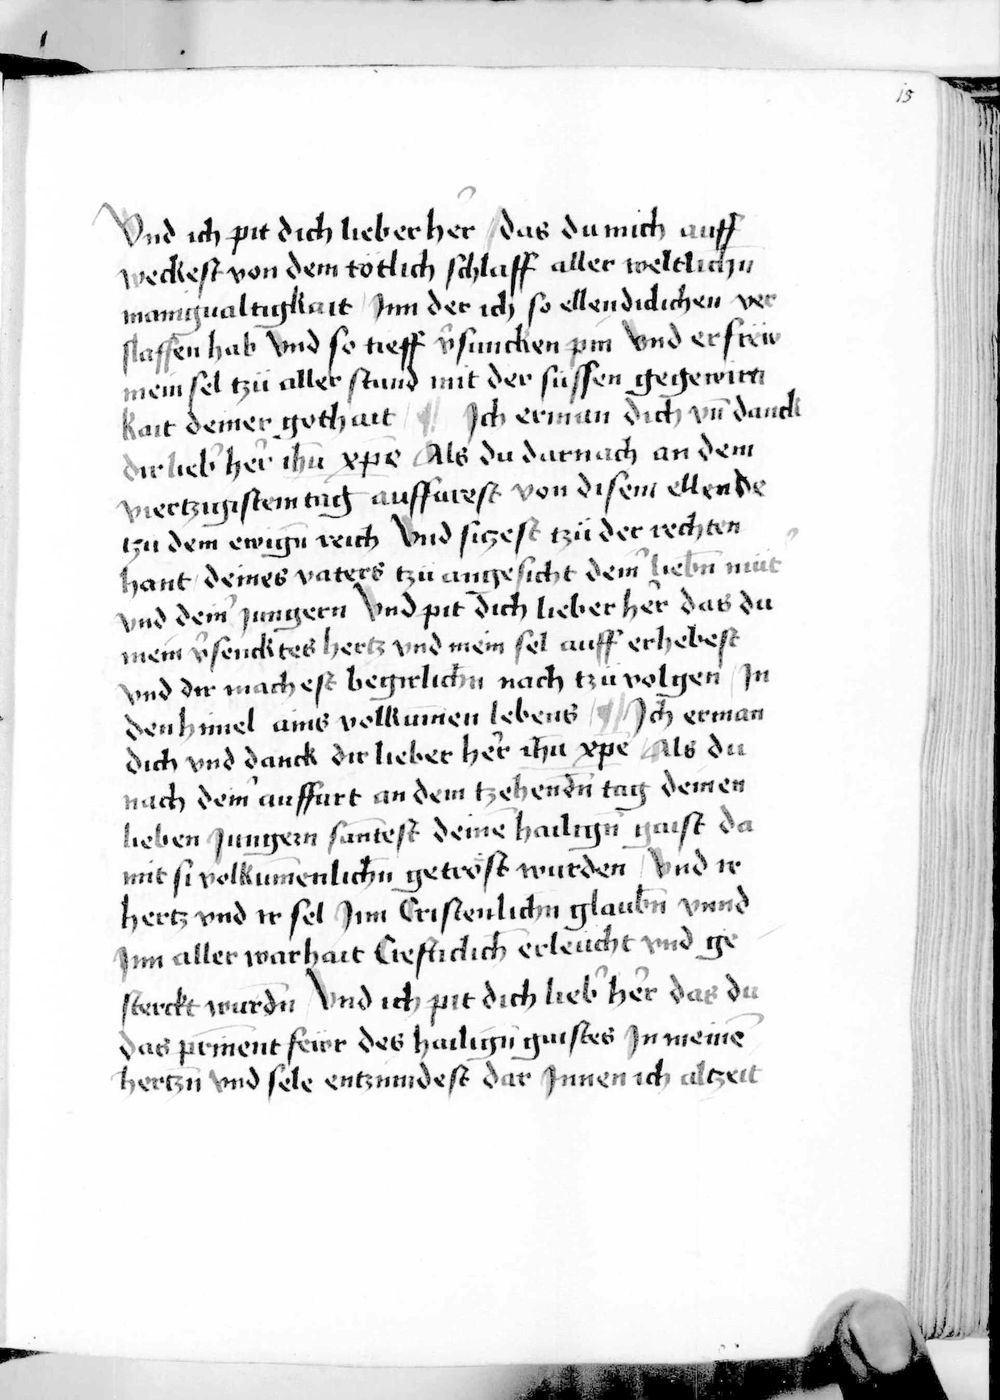 15
Vnd ich pit dich lieber her̉ / das du mich auff
weckest von dem tötlich schlaff aller weltlich̄n
manigualtigkait / Jnn der ich so ellendiclichen ver
slaffen hab Vnd so tieff v̉suncken pin Vnd erfrew
mein sel tzü aller stund mit der süssen gegewirti
kait deiner gothait / ¶ Ich erman dich vn̄ danck
dir lieb̉ her̉ ih̄u xp̄e Als du darnach an dem
viertzigistem tag auffurest von disem ellende
tzu dem ewign̄ reich Vnd siczest tzü der rechten
hant / deines vaters tzü angesicht dein̉ liebn̄ müt̉
vnd dein̉ Jungern Vnd pit dich lieber her̉ das du
mein v̉sencktes hertz vnd mein sel auff erhebest
vnd dir machest begirlich̄n nach tzü volgen / Jn
den himel ains volkumen lebens / ¶ Ich erman
dich vnd danck dir lieber her̉ ih̄u xp̄e Als du
nach dein̉ auffart an dem tzehendn̄ tag deinen
lieben Jungern san̄test deinē hailign̄ gaist da
mit si volkum̄enlich̄n getröst wurden / Vnd ir
hertz vnd ir sel Jnn Cristenlich̄n glaubn̄ vnnd
Jnn aller warhait Crefticlich̄ erleücht vnd ge
sterckt wurdn̄ Vnd ich pit dich lieb̉ her̉ das du
das prin̄ent feẅr des hailign̄ gaistes Jn meinē
hertzn̄ vnd sele entzundest dar Jnnen ich altzeit